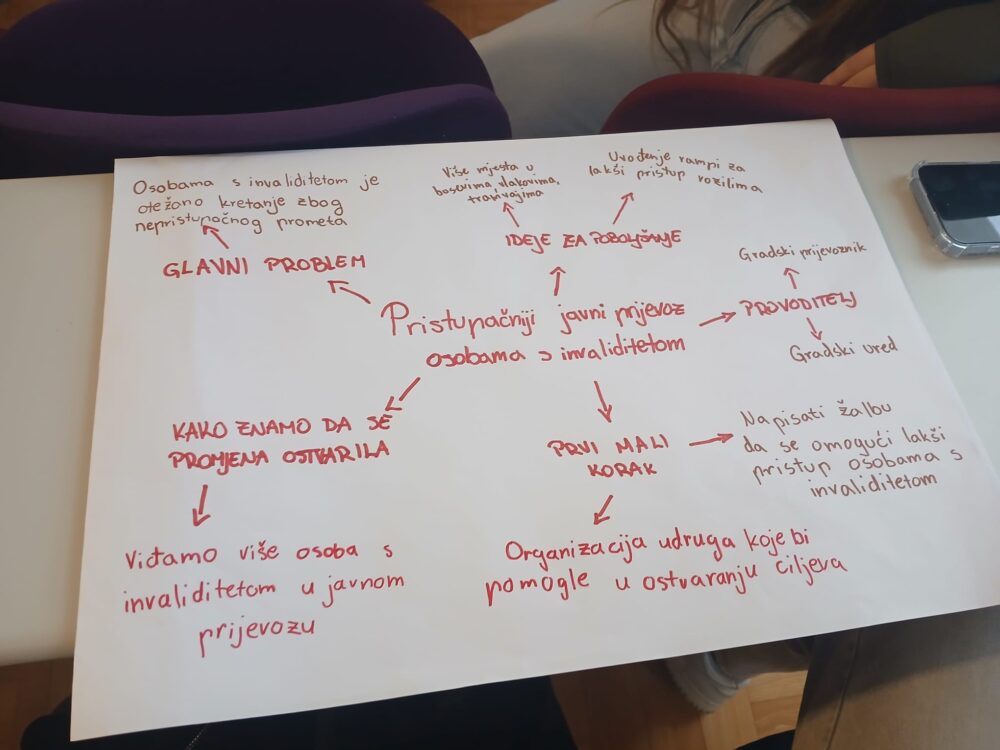 Osobama s invaliditetom je
otežano kretanje zbog
nepristupačnog prometa
GLAVNI PROBLEM
Više mjesta u
busevima, vlakovima,
tramvajima
Uvođenje rampi za
lakši pristup vozilima
IDEJE ZA POBOLJŠANJE
Pristupačniji javni prijevoz
osobama s invaliditetom
Gradski prijevoznik
PROVODITELJ
Gradski ured
KAKO ZNAMO DA SE
PROMJENA OSTVARILA
Viđamo više osoba s
invaliditetom u javnom
prijevozu
PRVI MALI
KORAK
Napisati žalbu
da se omogući lakši
pristup osobama s
invaliditetom
Organizacija udruga koje bi
pomogle u ostvaranju ciljeva